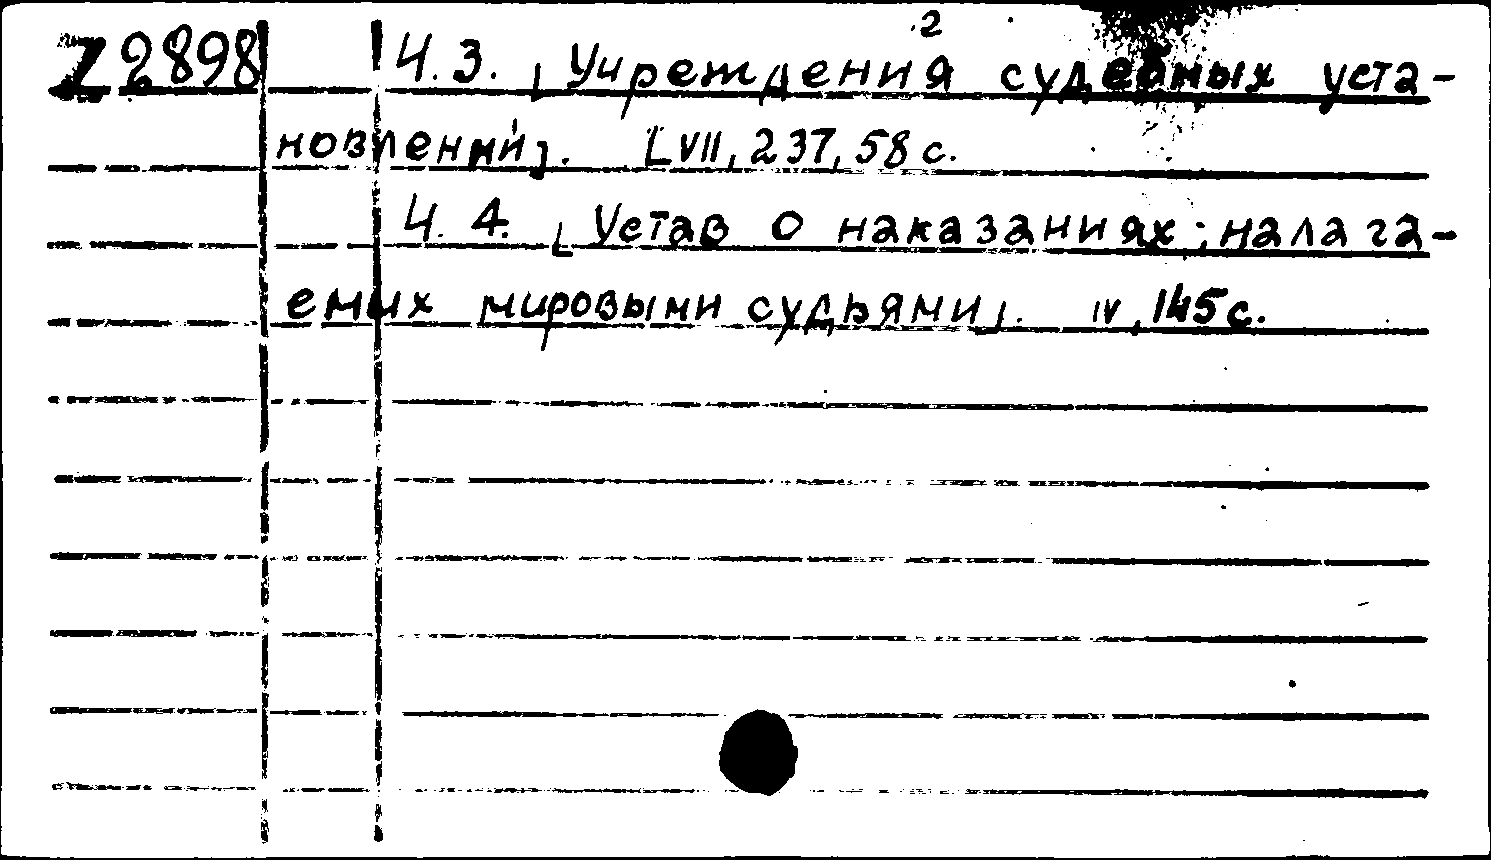 2
Z 2898 Ч.3. [Учреждения судебных уста-
новлений]. [VII, 237, 58 с.
Ч. 4. [Устав о наказаниях, налага-
емых мировыми судьями]. IV, 145 с.